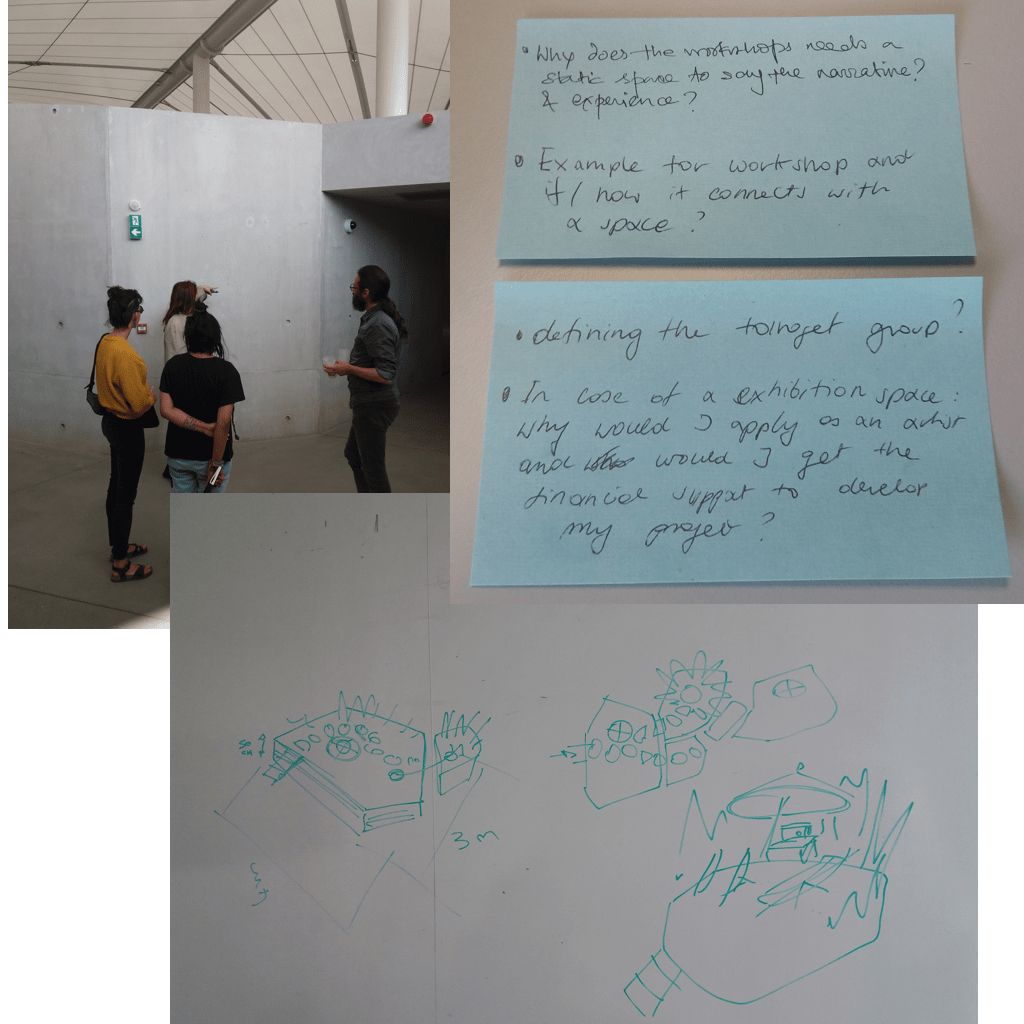 • Why does the workshops needs a
static space to say the narrative?
& experience?
• Example for workshop and
if / how it connects with
a space?
• defining the target group?
• In case of a exhibition space:
why would I apply as an artist
and would I get the
financial support to develop
my project?
3 m